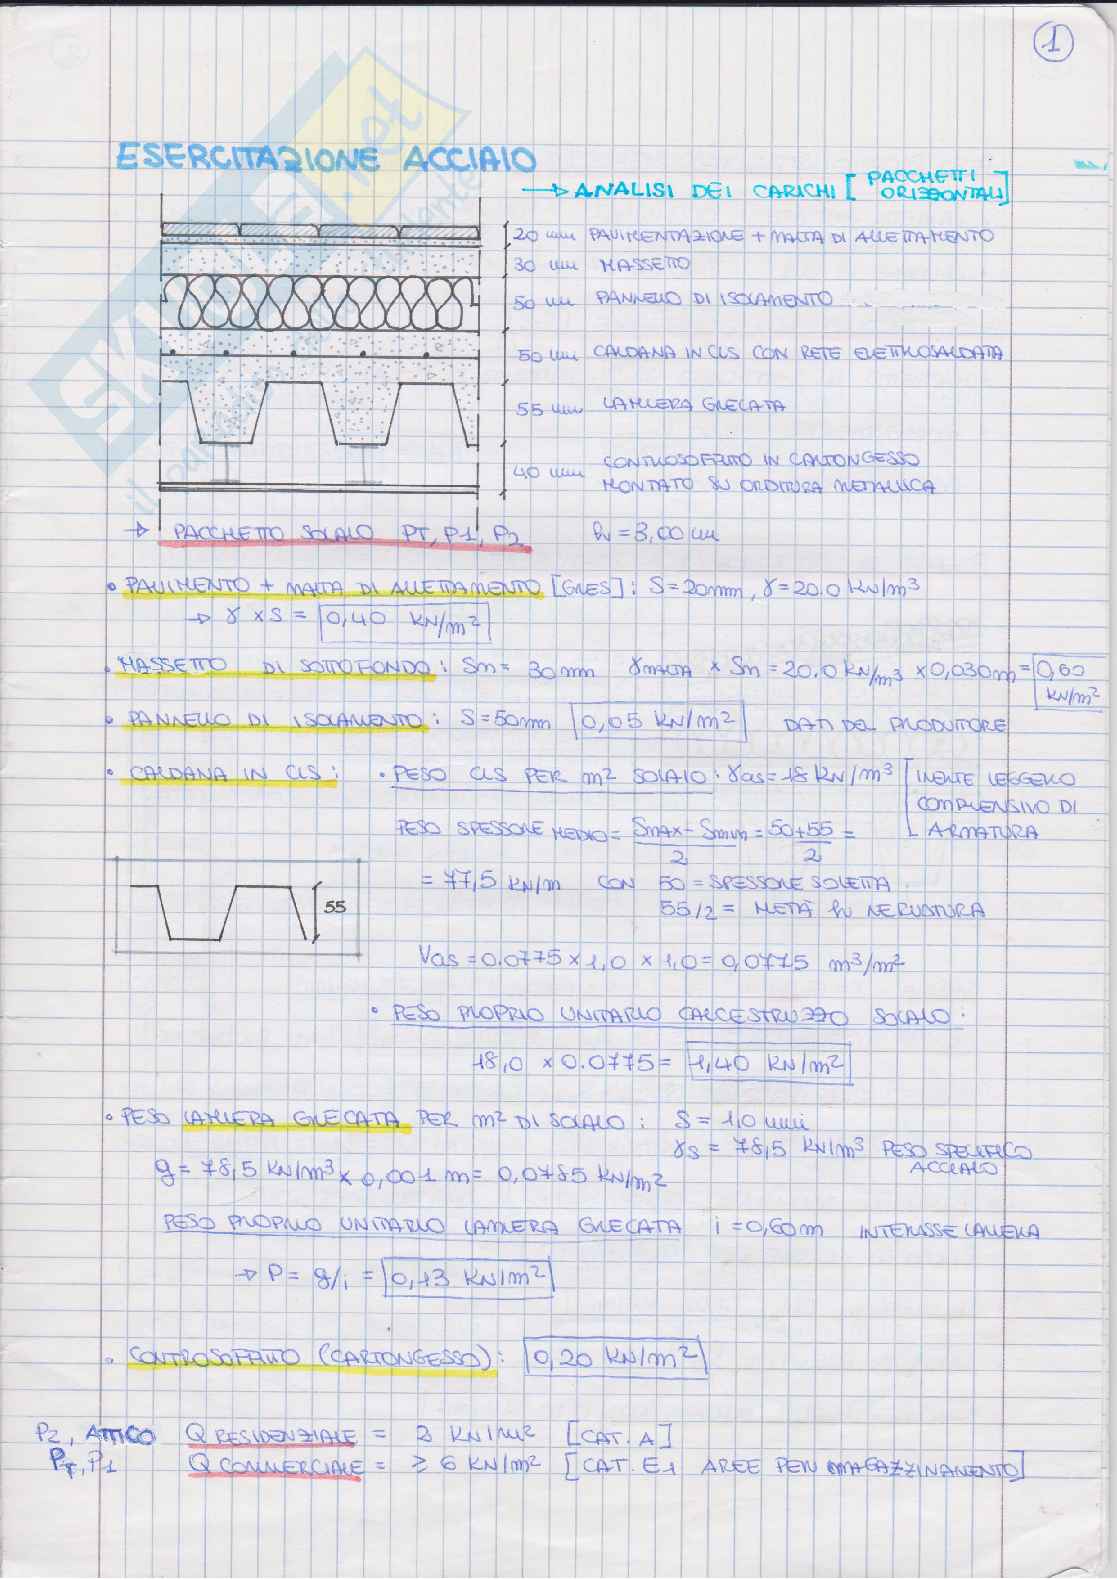 1
ESERCITAZIONE ACCIAIO
→ ANALISI DEI CARICHI [PACCHETTI ORIZZONTALI]
20 mm PAVIMENTAZIONE + MALTA DI ALLETTAMENTO
30 mm MASSETTO
50 mm PANNELLO DI ISOLAMENTO
50 mm CALDANA IN CLS CON RETE ELETTROSALDATA
55 mm LAMIERA GRECATA
40 mm CONTROSOFFITTO IN CARTONGESSO
MONTATO SU ORDITURA METALLICA
→ PACCHETTO SOLAIO PT, P1, P2 h = 3,00 m
• PAVIMENTO + MALTA DI ALLETTAMENTO [GRES]: S = 20mm, γ = 20.0 KN/m³
→ γ × S = 0,40 KN/m²
• MASSETTO DI SOTTOFONDO: Sm = 30mm γMALTA × Sm = 20.0 KN/m³ × 0,030m = 0,60 KN/m²
• PANNELLO DI ISOLAMENTO: S = 50mm 0,05 KN/m² DATI DEL PRODUTORE
• CALDANA IN CLS: • PESO CLS PER m² SOLAIO: γcls = 18 KN/m³ [INERTE LEGGERO
COMPRENSIVO DI
ARMATURA
PESO SPESSORE MEDIO = Smax - Smin / 2 = 50+55 / 2 =
= 77,5 KN/m CON 50 = SPESSORE SOLETTA
55/2 = METÀ h NERVATURA
55
Vcls = 0.0775 × 1,0 × 1,0 = 0,0775 m³/m²
• PESO PROPRIO UNITARIO CALCESTRUZZO SOLAIO:
18,0 × 0.0775 = 1,40 KN/m²
• PESO LAMIERA GRECATA PER m² DI SOLAIO: S = 1,0 mm
γs = 78,5 KN/m³ PESO SPECIFICO
ACCIAIO
g = 78,5 KN/m³ × 0,001 m = 0,0785 KN/m²
PESO PROPRIO UNITARIO LAMIERA GRECATA i = 0,60m INTERASSE LAMIERA
→ P = g/i = 0,13 KN/m²
• CONTROSOFFITTO (CARTONGESSO): 0,20 KN/m²
P2, ATTICO Q RESIDENZIALE = 2 KN/m² [CAT. A]
PT, P1 Q COMMERCIALE = ≥ 6 KN/m² [CAT. E1 AREE PER MAGAZZINAMENTO]